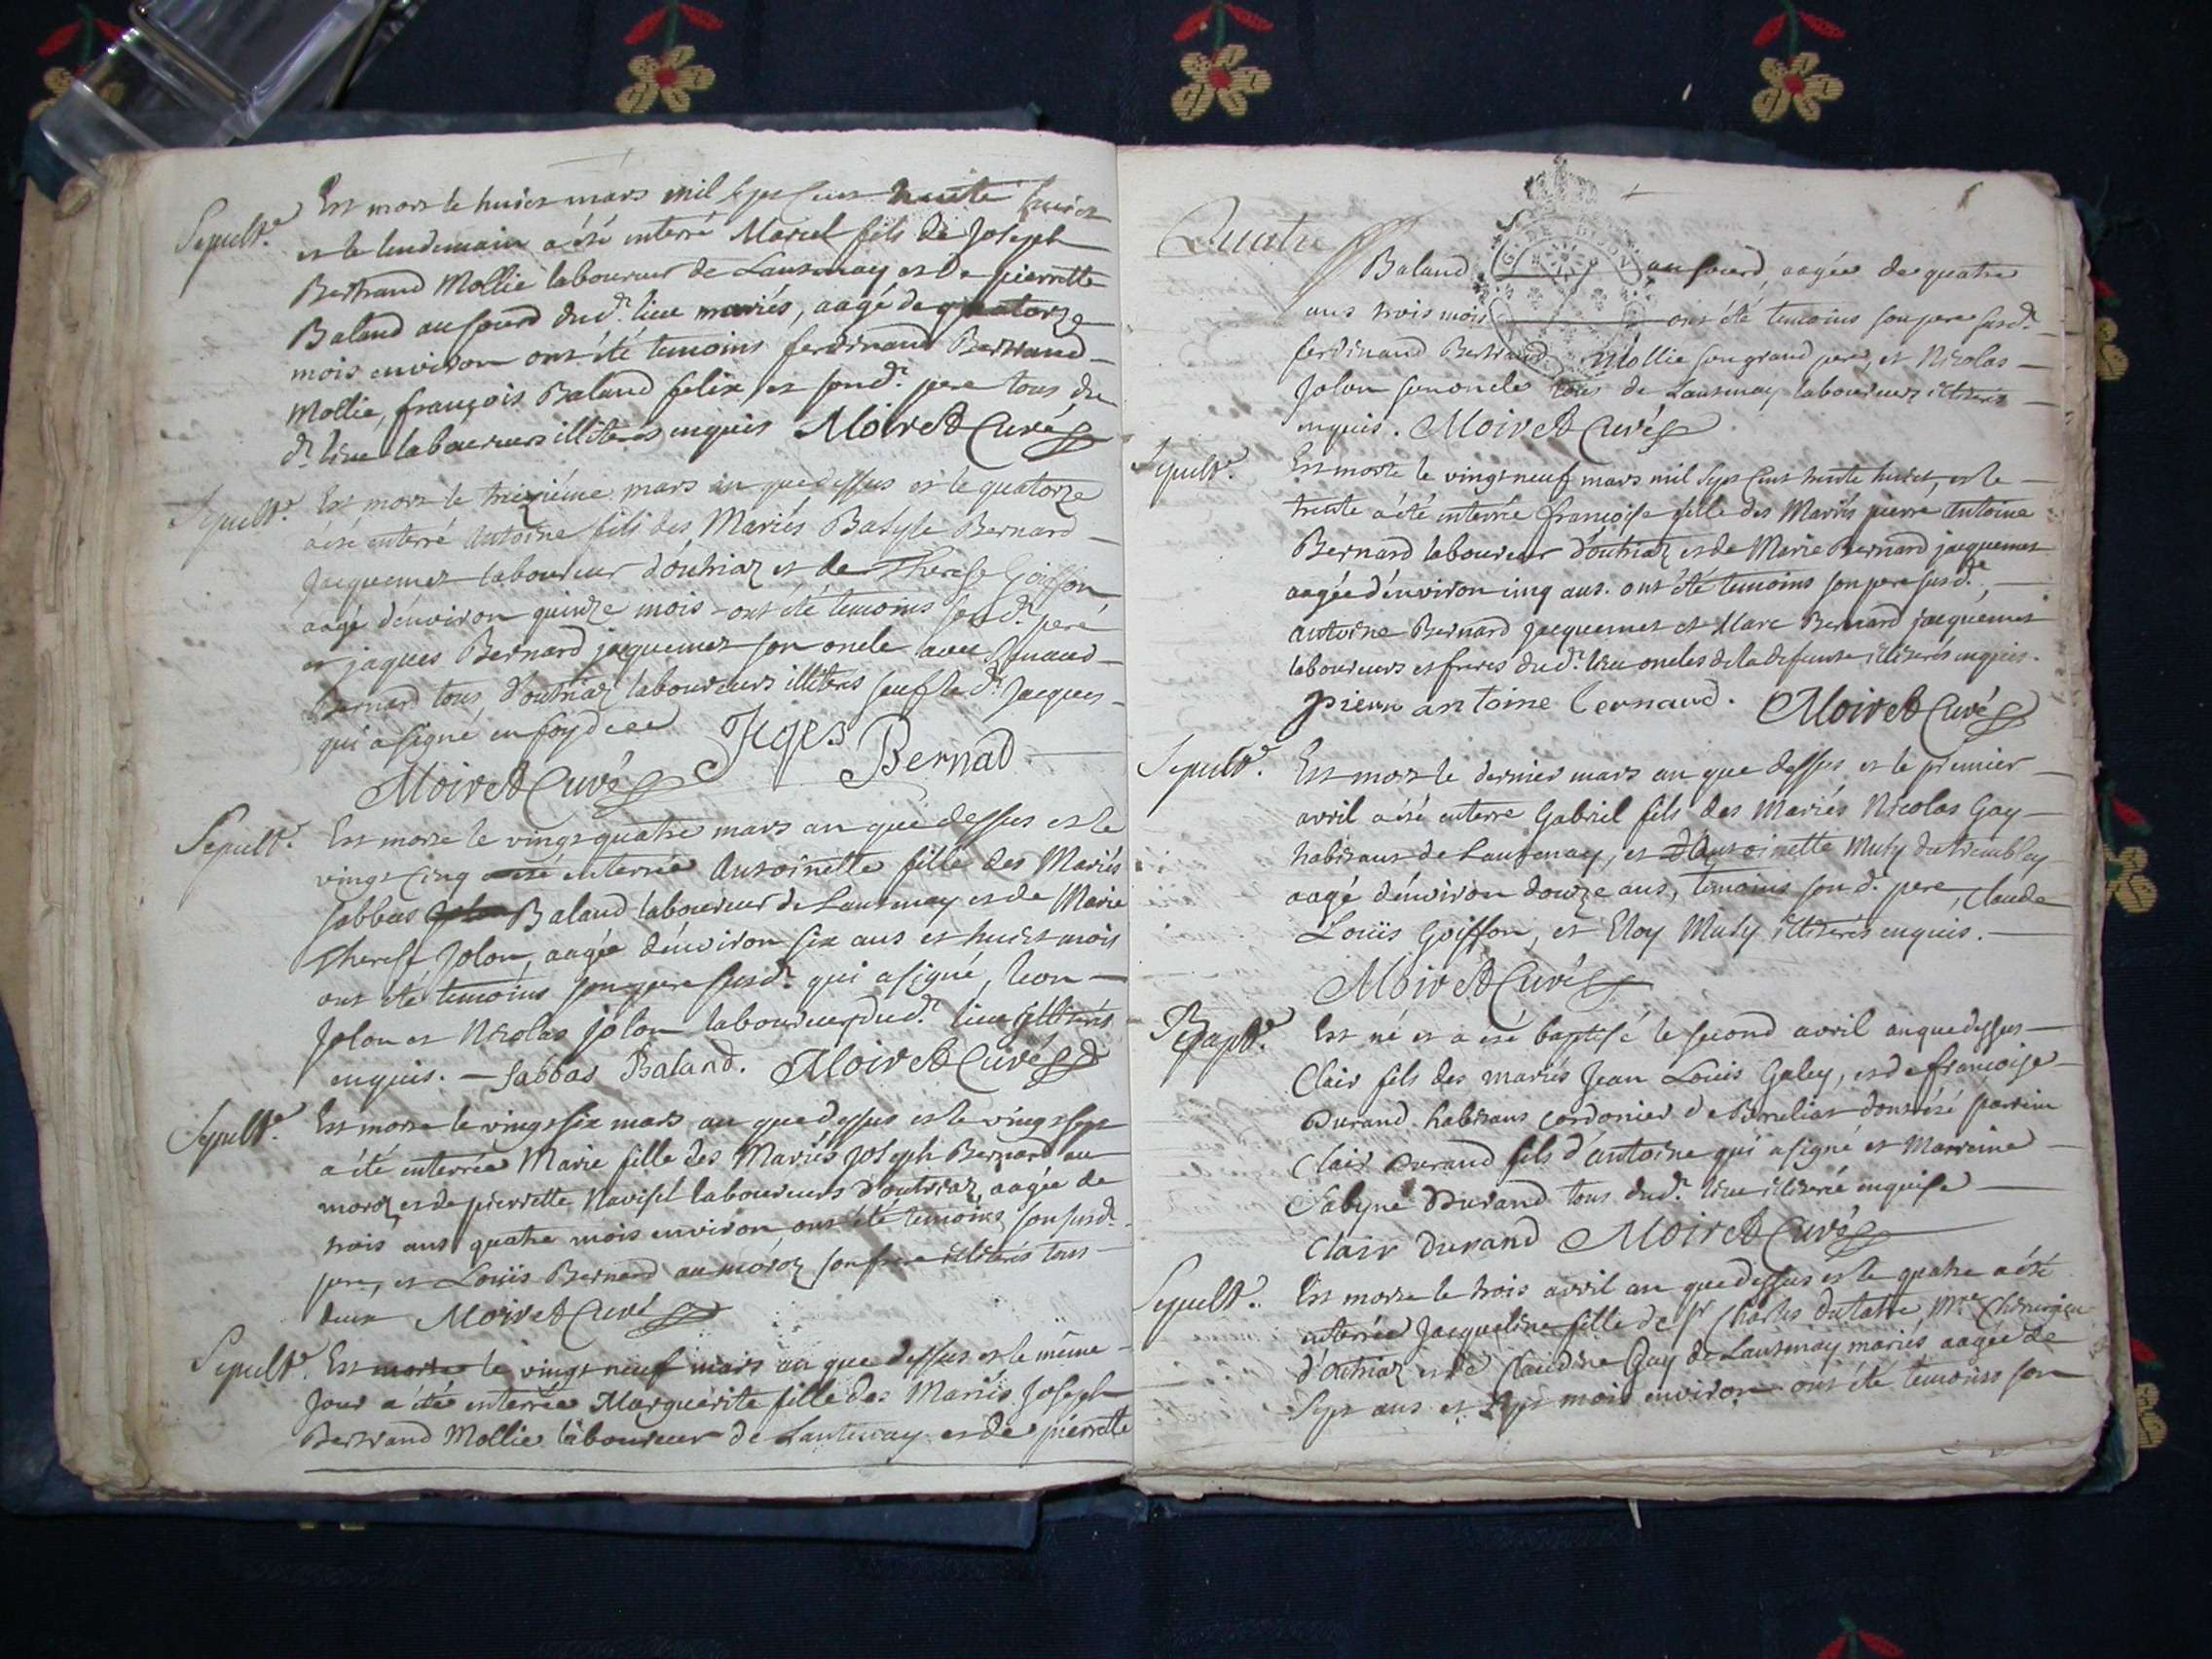 Sepult.e Est mort le huict mars mil sept cent trente huict
et le lendemain a été enterré Marcel fils de Joseph
Bertrand Mollie laboureur de Lantenay et de pierrette
Baland au sourd dud.t lieu mariés, aagé de quatorze
mois environ ont été temoins ferdinand Bertrand
Mollie, françois Baland felix, et sond.t pere tous du
d.t lieu laboureurs illiterés enquis Moiret Curé
Sepult.e Est mort le treizième mars an que dessus et le quatorze
a été enterré Antoine fils des Mariés Batiste Bernard
Jacquemet laboureur d'outriaz et de Therese Goiffon,
aagé d'environ quinze mois ont été temoins sond.t pere
et jaques Bernard jacquemet son oncle avec
Bernard tous d'outriaz laboureurs illiterés sauf led.t Jacques
qui a signé en foy de ce Jeqes Bernad
Moiret Curé
Sepult.e Est morte le vingt quatre mars an que dessus et le
vingt cinq a été enterrée Antoinette fille des Mariés
Sabbas Baland laboureur de Lantenay et de Marie
Therese Jolon, aagée d'environ six ans et huict mois
ont été temoins son pere susd.t qui a signé, leon
Jolon et Nicolas jolon laboureurs dud.t lieu illiterés
enquis. — Sabbas Baland. Moiret Curé
Sepult.e Est morte le vingt six mars an que dessus et le vingt sept
a été enterrée Marie fille des Mariés Joseph Bernard au
moroz et de pierrette Navisel laboureurs d'outriaz, aagée de
trois ans quatre mois environ, ont été temoins son susd.t
pere, et Louis Bernard au moroz son frere illiterés tous
deux Moiret Curé
Sepult.e Est morte le vingt neuf mars an que dessus et le même
Jour a été enterrée Marguerite fille des Mariés Joseph
Bertrand Mollie laboureur de Lantenay et de pierrette
Quatre
G. DE DIJON
Baland au sourd, aagée de quatre
ans trois mois ont été temoins son pere susd.t
ferdinand Bertrand Mollie son grand pere, et Nicolas
Jolon son oncle tous de Lantenay laboureurs illiterés
enquis. Moiret Curé
Sepult.e Est morte le vingt neuf mars mil sept cent trente huict, et le
trente a été enterrée françoise fille des Mariés pierre Antoine
Bernard laboureur d'outriaz et de Marie Bernard jacquemet
aagée d'environ cinq ans. ont été temoins son pere susd.t,
antoine Bernard Jacquemet et Marc Bernard jacquemet
laboureurs et freres dud.t lieu oncles de la defunte illiterés enquis.
pierre antoine bernard. Moiret Curé
Sepult.e Est mort le dernier mars an que dessus et le premier
avril a été enterré Gabriel fils des Mariés Nicolas Gay
habitant de Lantenay, et d'Antoinette Muty du tremblay
aagé d'environ douze ans, temoins son d. pere, Claude
Louis Goiffon, et Eloy Muty illiterés enquis.
Moiret Curé
Bapt.e Est né et a été baptisé le second avril an que dessus
Clair fils des mariés Jean Louis Galey, et de françoise
Durand habitant cordonier de Brenelias dont été parrein
Clair Durand fils d'antoine qui a signé et Marreine
Sabyne Durand tous dud.t lieu illiterée enquise
Clair durand Moiret Curé
Sepult.e Est morte le trois avril an que dessus et le quatre a été
enterrée Jacqueline fille de Sr Charles dutatre, M.re Chirurgien
d'outriaz et de Claudine Guy de Lantenay mariés aagée de
Sept ans et sept mois environ ont été temoins son